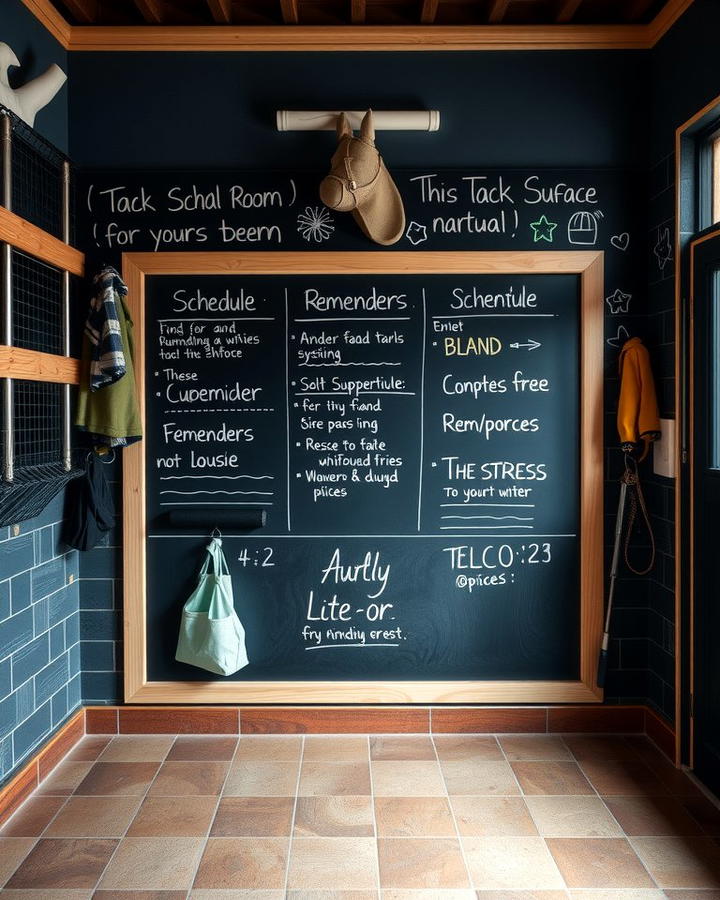 (Tack Schal Room)
(for yours beem
This Tack Suface
nartual!
Schedule
Find for and
tacl the
These
Cupemider
Femenders
not Lousie
Remenders
Ander faad tarls
Salt Suppertiule:
fer tiny fund
Sire pars ling
Resce to fatle
whifourd fries
Wawero & dlugd
pliices
Schentule
Emlet
BLAND
Conptes free
Rem/porces
THE STRESS
To yourt witer
4:2
Awtly
Lite-or
fry Anidiy erest.
TELCO:23
@piices: